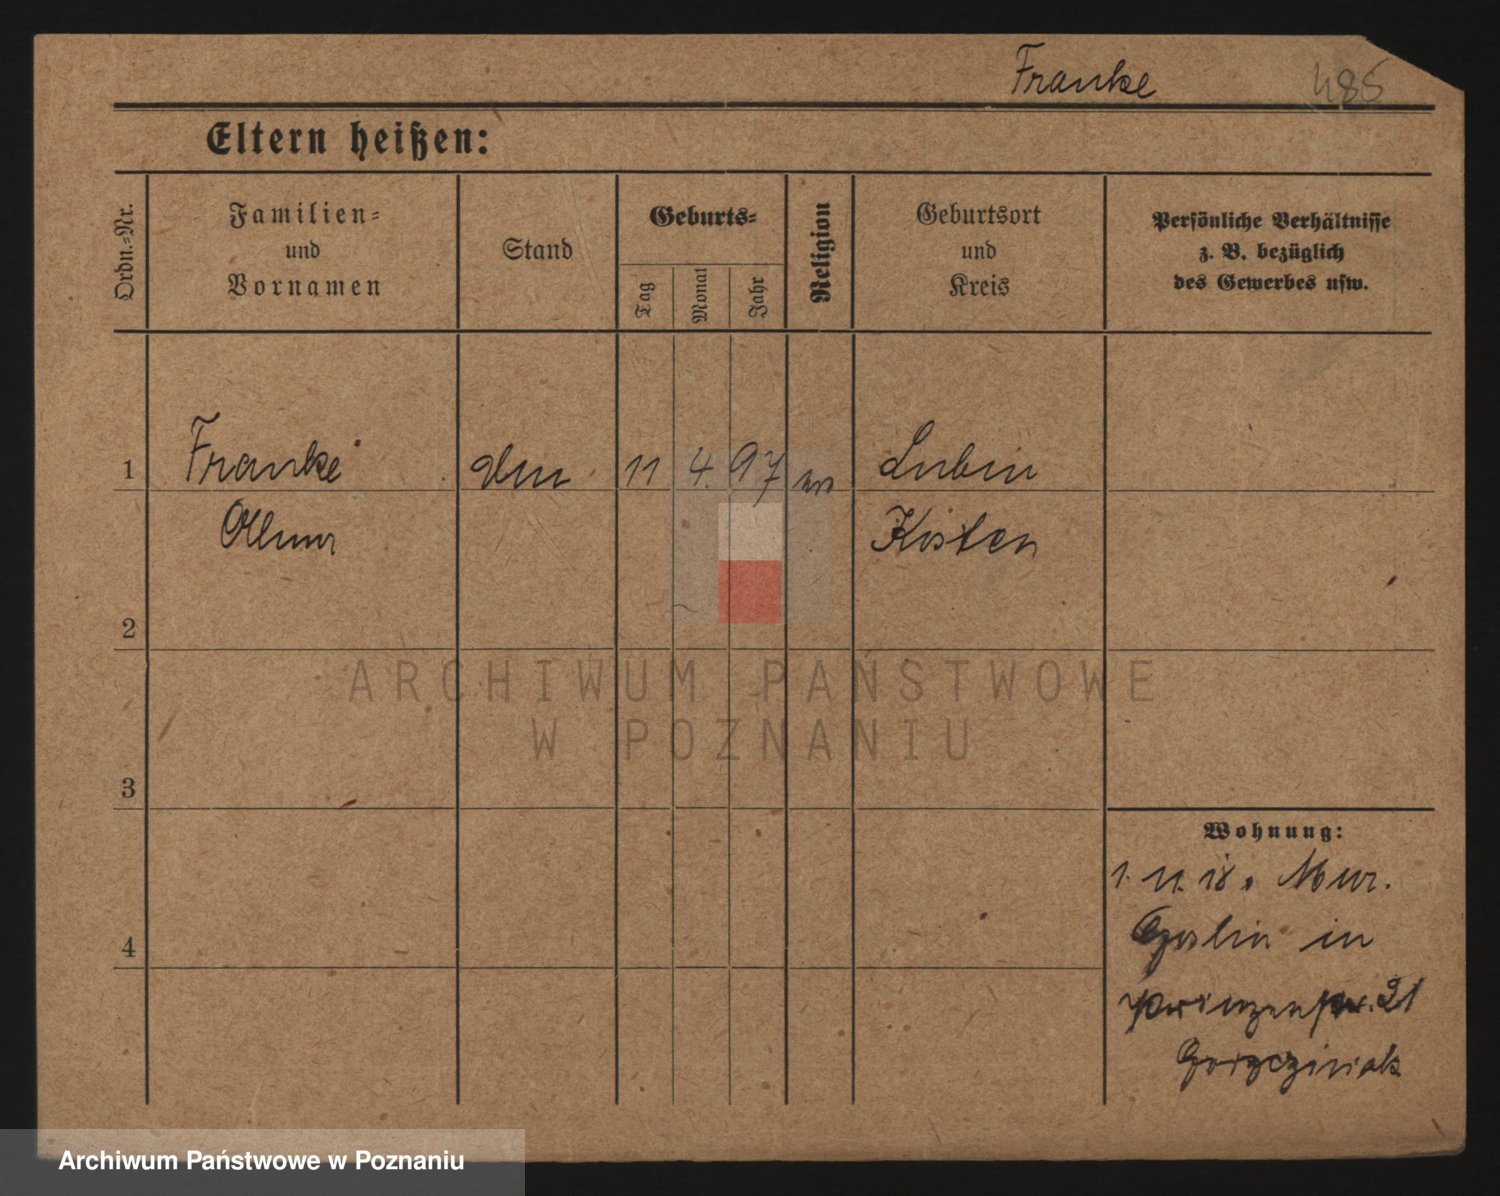 Franke 485
Eltern heißen:
Ordn.-Nr.
Familien-
und
Vornamen
Stand
Geburts-
Tag
Monat
Jahr
Religion
Geburtsort
und
Kreis
Persönliche Verhältnisse
z. B. bezüglich
des Gewerbes usw.
1 Franke 11 4. 97 Lubin
Kosten
2
3
4
Wohnung:
1. 11. 18. Mur.
Goslin in
Prinzenstr. 21
ARCHIWUM PAŃSTWOWE
W POZNANIU
Archiwum Państwowe w Poznaniu